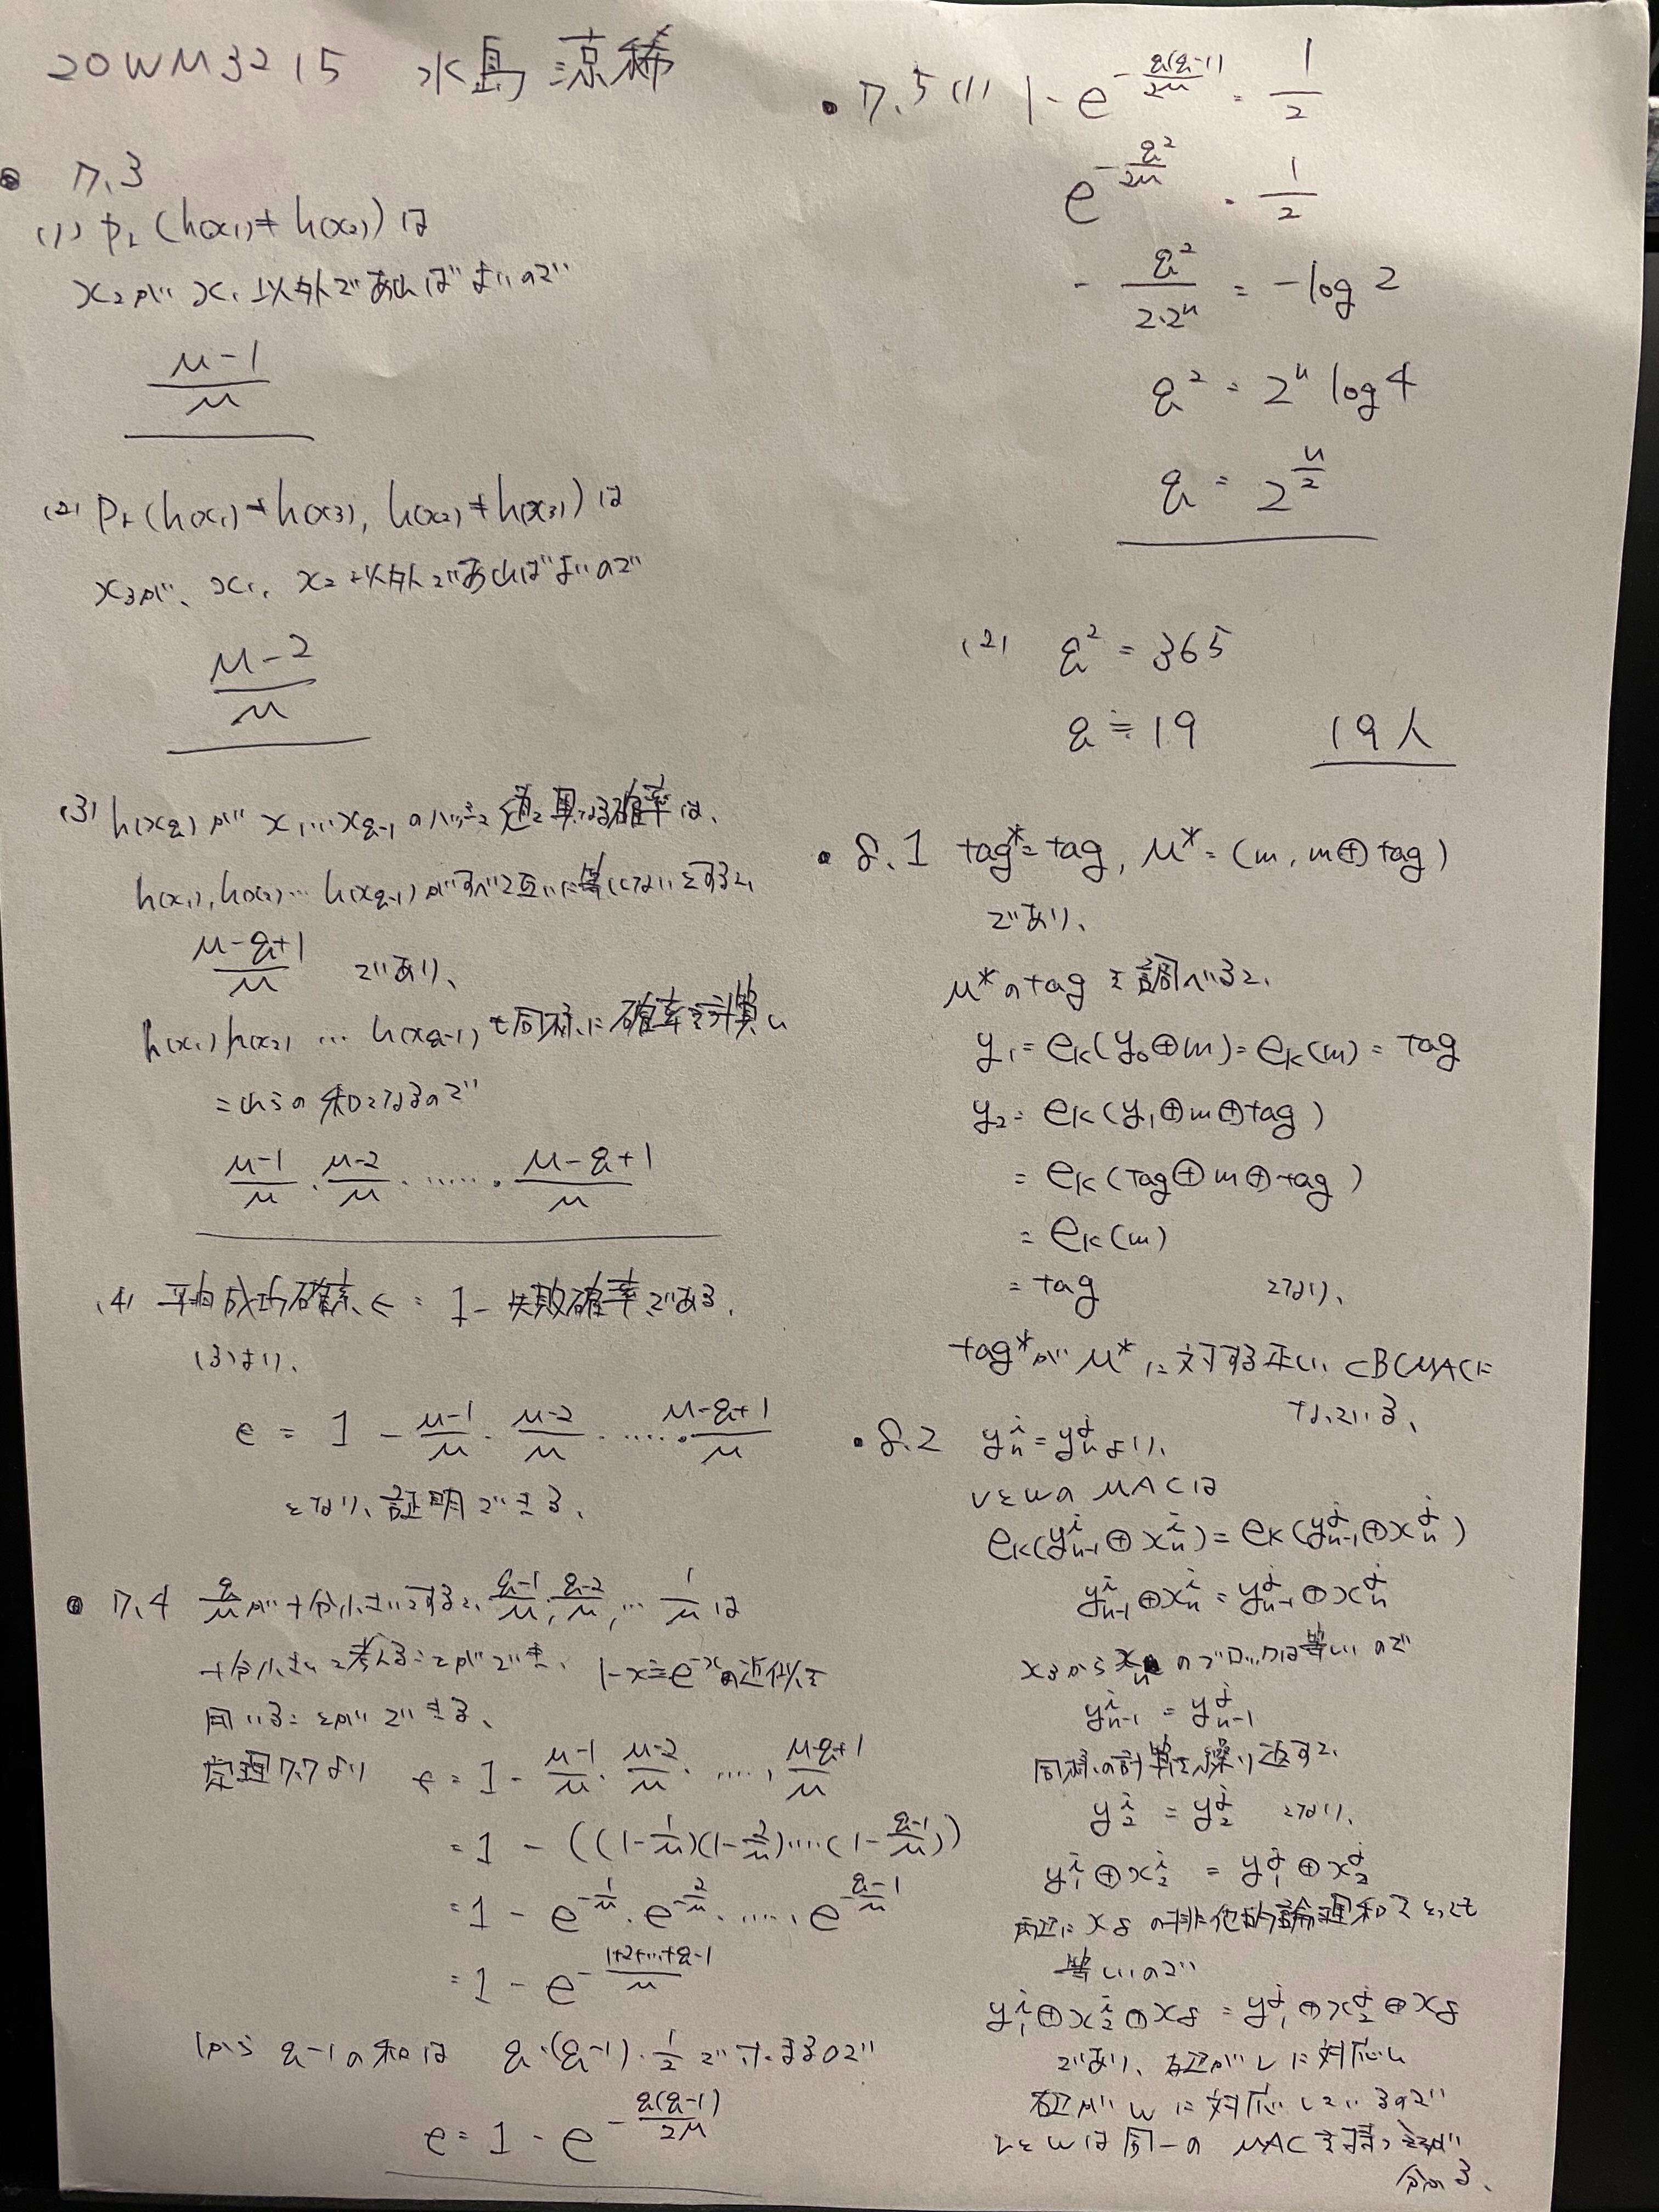 20WM3215 水島涼稀
• 7.3
(1) Pr(h(x₁)≠h(x₂))は
x₂が x₁以外であればよいので
M-1/M
(2) Pr(h(x₁)≠h(x₃), h(x₂)≠h(x₃))は
x₃が、x₁, x₂以外であればよいので
M-2/M
(3) h(xq)が x₁…xq-1のハッシュ値と異なる確率は、
h(x₁), h(x₂)… h(xq-1)がすべて互いに等しくないとすると、
M-q+1/M であり、
h(x₁) h(x₂) … h(xq-1)も同様に確率を計算し
これらの和となるので
M-1/M · M-2/M · …… · M-q+1/M
(4) 平均成功確率、ε = 1 - 失敗確率である、
(3)より、
e = 1 - M-1/M · M-2/M · …… · M-q+1/M
となり、証明できる、
• 7.4 q/Mが十分小さいとすると、q-1/M, q-2/M, … 1/M は
十分小さいと考えることができ、1-x≒e^-xの近似を
用いることができる、
定理7.7より ε = 1 - M-1/M · M-2/M · …… · M-q+1/M
= 1 - ((1-1/M)(1-2/M)……(1-q-1/M))
= 1 - e^(-1/M) · e^(-2/M) · …… · e^(-q-1/M)
= 1 - e^(-1+2+…+q-1/M)
1から q-1の和は q·(q-1)·1/2 で求まるので
e = 1 - e^(-q(q-1)/2M)
• 7.5 (1) 1 - e^(-q(q-1)/2M) = 1/2
e^(-q²/2M) = 1/2
- q²/2·2ⁿ = -log 2
q² = 2ⁿ log 4
q = 2^(n/2)
(2) q² = 365
q ≒ 19 19人
• 8.1 tag* = tag, M* = (m, m⊕tag)
であり、
M*のtagを調べると、
y₁ = eK(y₀⊕m) = eK(m) = tag
y₂ = eK(y₁⊕m⊕tag)
= eK(tag⊕m⊕tag)
= eK(m)
= tag となり、
tag*が M*に対する正しい CBCMACに
なっている、
• 8.2 yₙⁱ = yₙʲより、
vとwの MACは
eK(yₙ₋₁ⁱ⊕xₙⁱ) = eK(yₙ₋₁ʲ⊕xₙʲ)
yₙ₋₁ⁱ⊕xₙⁱ = yₙ₋₁ʲ⊕xₙʲ
x₃からxₙのブロックは等しいので
yₙ₋₁ⁱ = yₙ₋₁ʲ
同様の計算を繰り返すと、
y₂ⁱ = y₂ʲ となり、
y₁ⁱ⊕x₂ⁱ = y₁ʲ⊕x₂ʲ
両辺に xδ の排他的論理和をとっても
等しいので
y₁ⁱ⊕x₂ⁱ⊕xδ = y₁ʲ⊕x₂ʲ⊕xδ
であり、左辺がvに対応し
右辺がwに対応しているので
vとwは同一の MACを持つことが
分かる、